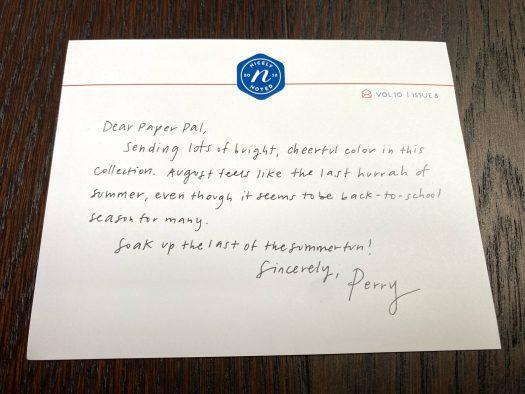 NICELY
20 n 10
NOTED
VOL 10 | ISSUE 8
Dear Paper Pal,
Sending lots of bright, cheerful color in this
collection. August feels like the last hurrah of
summer, even though it seems to be back-to-school
season for many.
Soak up the last of the summer fun!
Sincerely,
Perry